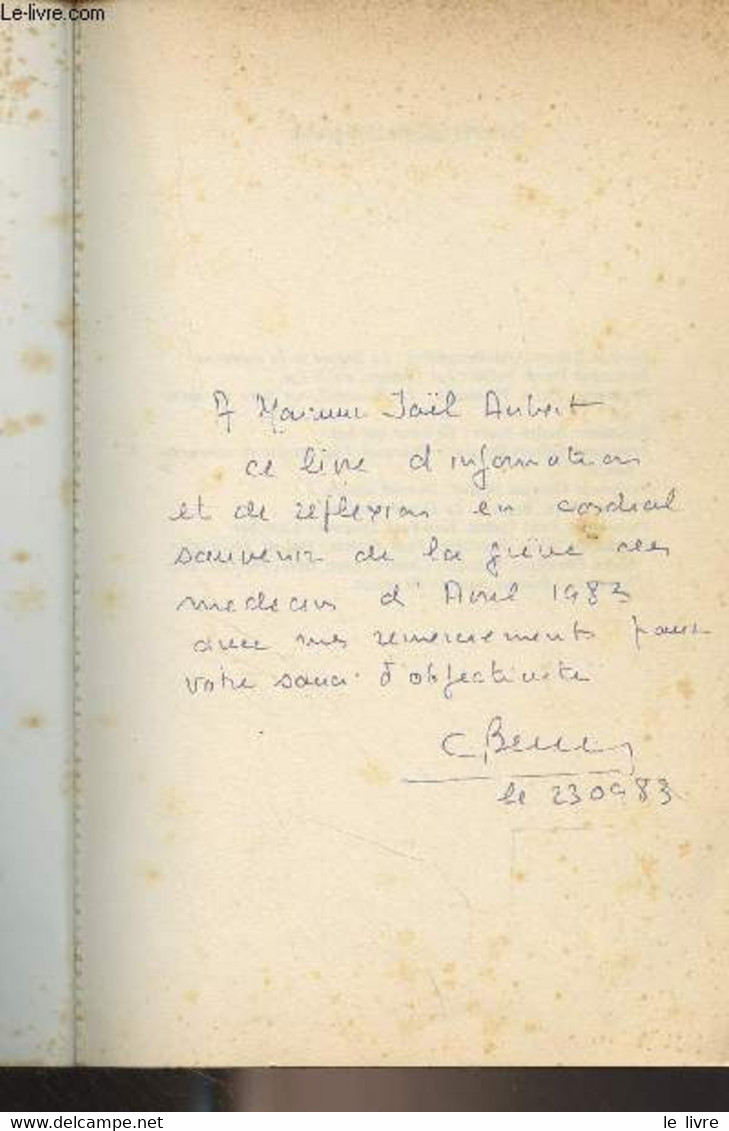 Le-livre.com
A Monsieur Jaël Aubert
ce livre d'information
et de réflexion en cordial
souvenir de la grève des
médecins d'Avril 1983
avec mes remerciements pour
votre souci d'objectivité
le 230983
www.delcampe.net
le livre